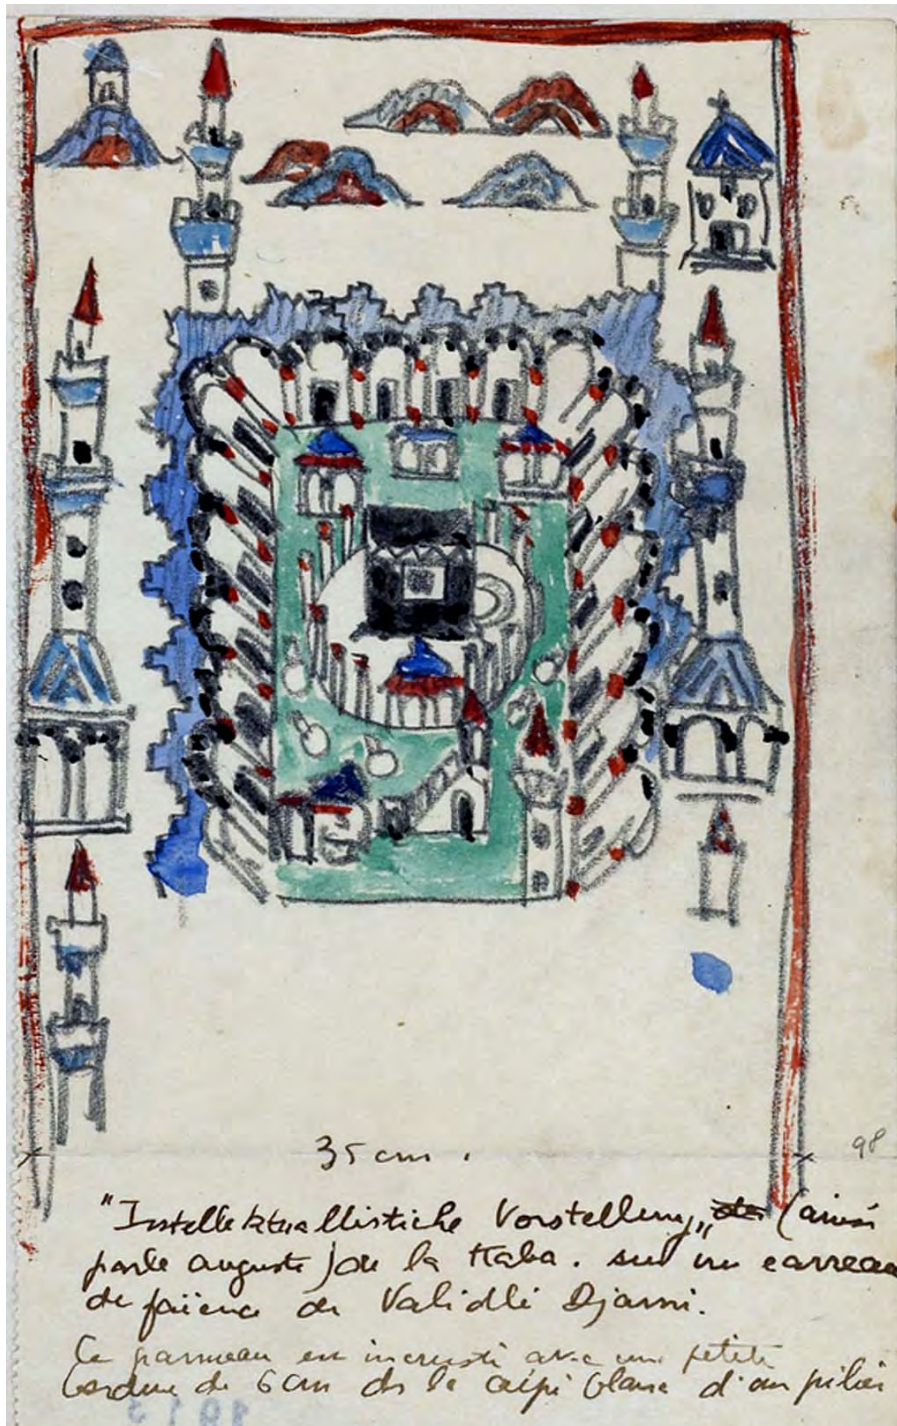 35 cm.
98
"Intellektuallistiche Vorstellung„ (ainsi
parle auguste) de la Kaba. sur un carreau
de faïence de Validli Djami.
Ce panneau est incrusté avec une petite
bordure de 6 cm ds le crépi blanc d'un pilier